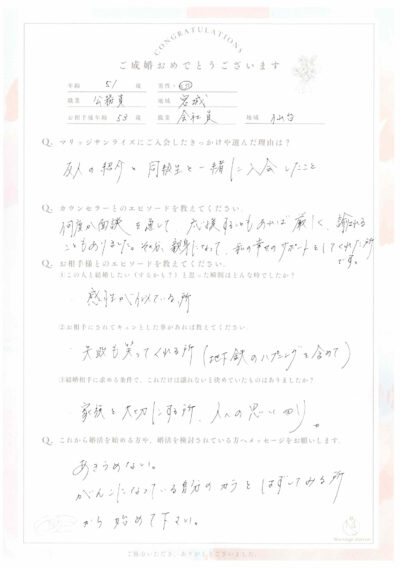 CONGRATULATIONS
ご成婚おめでとうございます
年齢 51 歳 男性・
職業 公務員 地域 宮城
お相手様年齢 53 歳 職業 会社員 地域 仙台
Q. マリッジサンライズにご入会したきっかけや選んだ理由は？
友人の紹介と同級生と一緒に入会したこと
Q. カウンセラーとのエピソードを教えてください。
何度か面談を通して 応援することもあれば厳しく、諭される
こともありました。その分、親身になって、私の幸せのサポートをしてくれた所
です。
Q. お相手様とのエピソードを教えてください。
①この人と結婚したい（するかも！）と思った瞬間はどんな時でしたか？
・感性が似ている所
②お相手にされてキュンとした事があれば教えてください
・失敗も笑ってくれる所（地下鉄のハプニングを含めて）
③結婚相手に求める条件で、これだけは譲れないと決めていたものはありましたか？
・家族を大切にする所、人への思いやり。
Q. これから婚活を始める方や、婚活を検討されている方へメッセージをお願いします。
あきらめない。
がんこになっている自分のカラをはずしてみる所
から始めて下さい。
Marriage Sunrise
ご協力いただき、ありがとうございました。